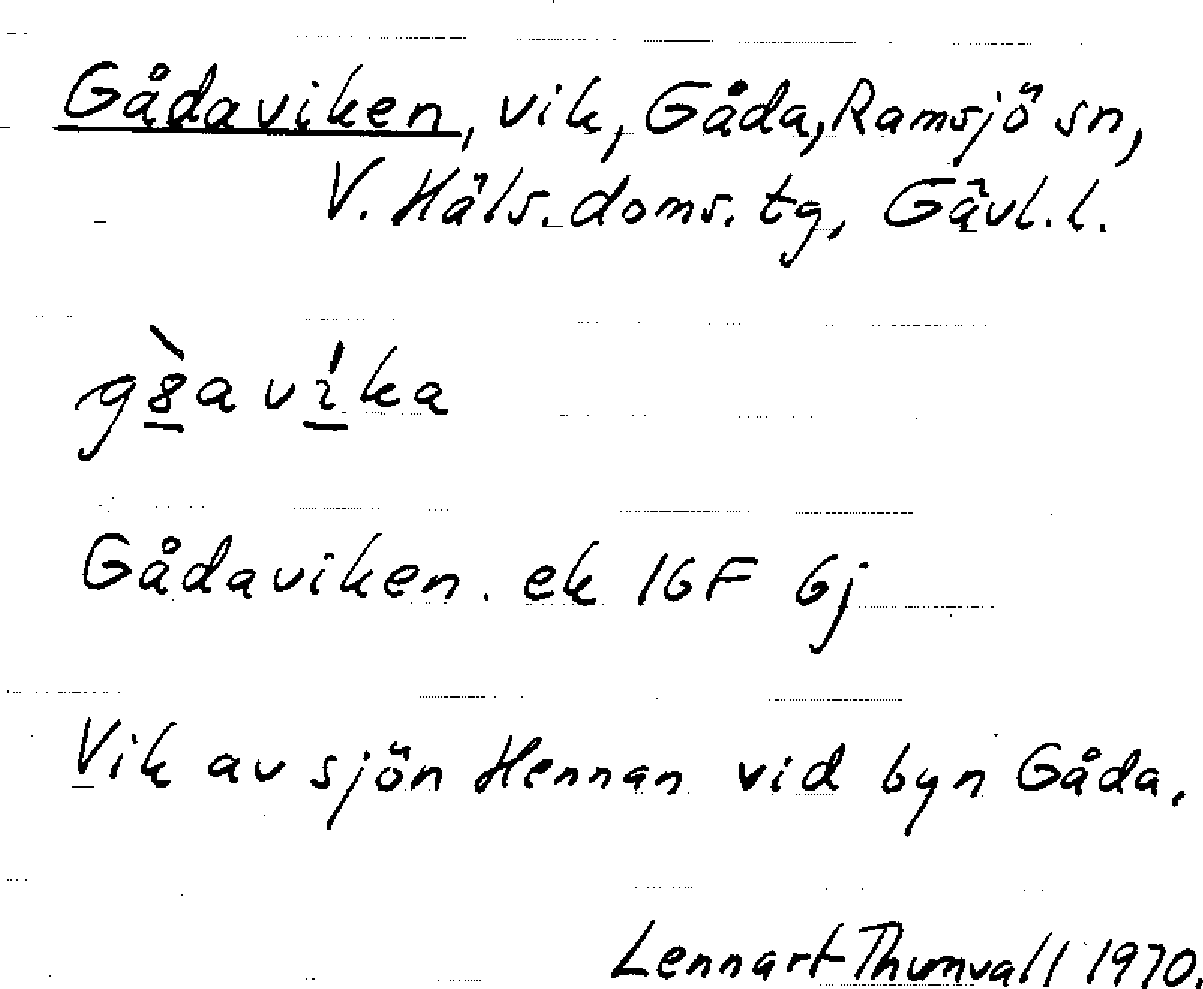 Gådaviken, vik, Gåda, Ramsjö sn,
V. Häls. doms. tg, Gävl. l.
g8̲̀a vı̲́ka
Gådaviken. ek 16F 6j
Vik av sjön Hennan vid byn Gåda.
Lennart Thunvall 1970.